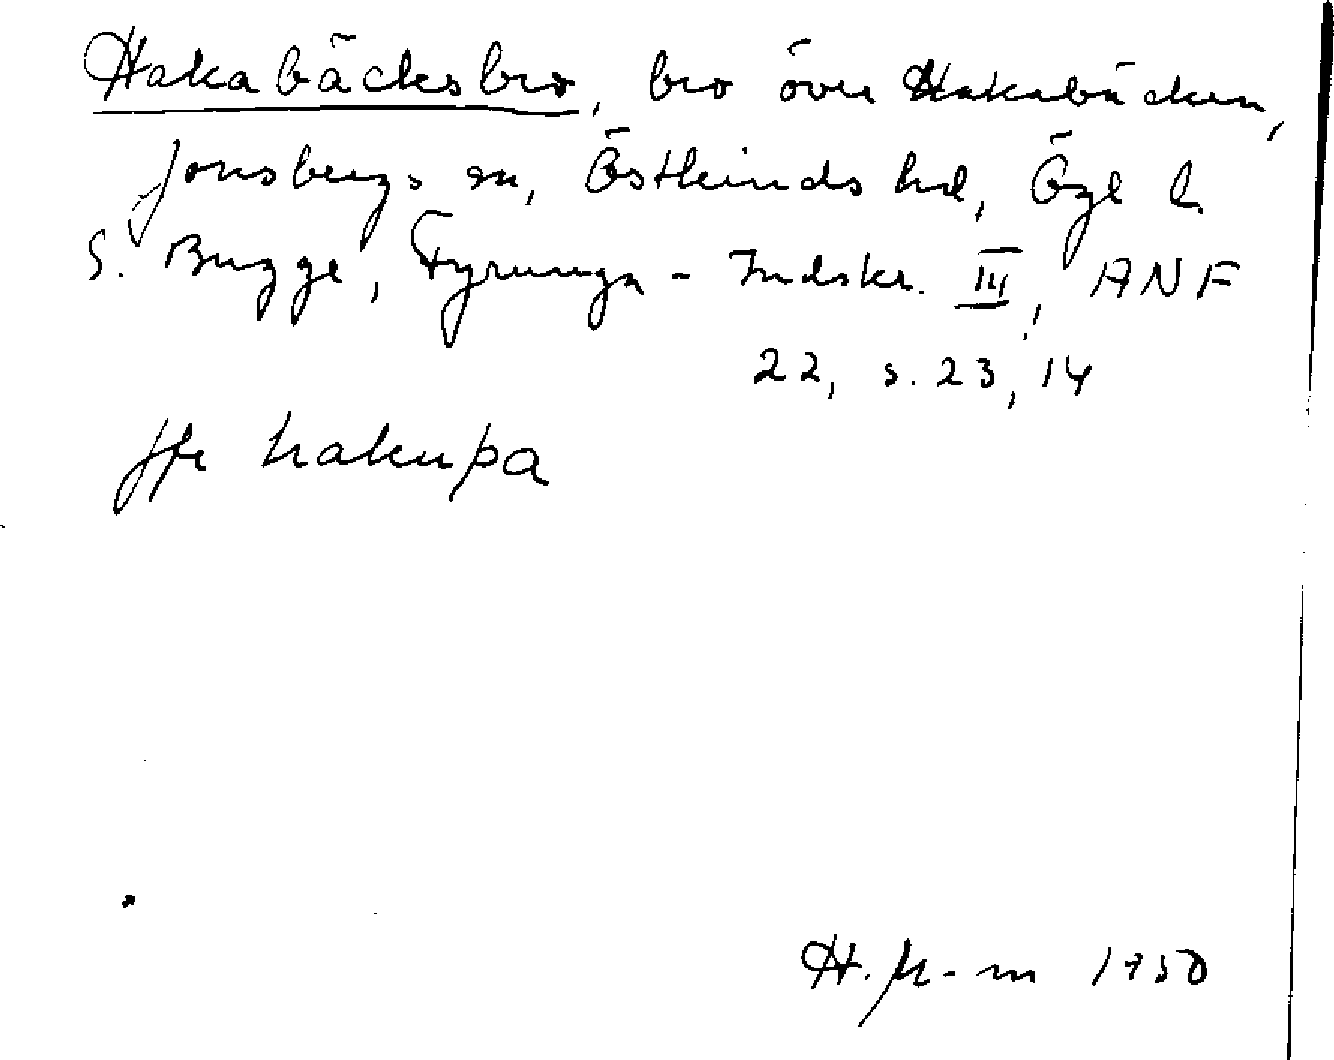 Hakabäcksbro, bro över Hakabäcken,
Jonsbergs sn, Östkinds hd, Ögl l.
S. Bugge, Fyrunga-Indskr. III, ANF
22, s. 23, 14
Jfr hakuþa
H. 1950